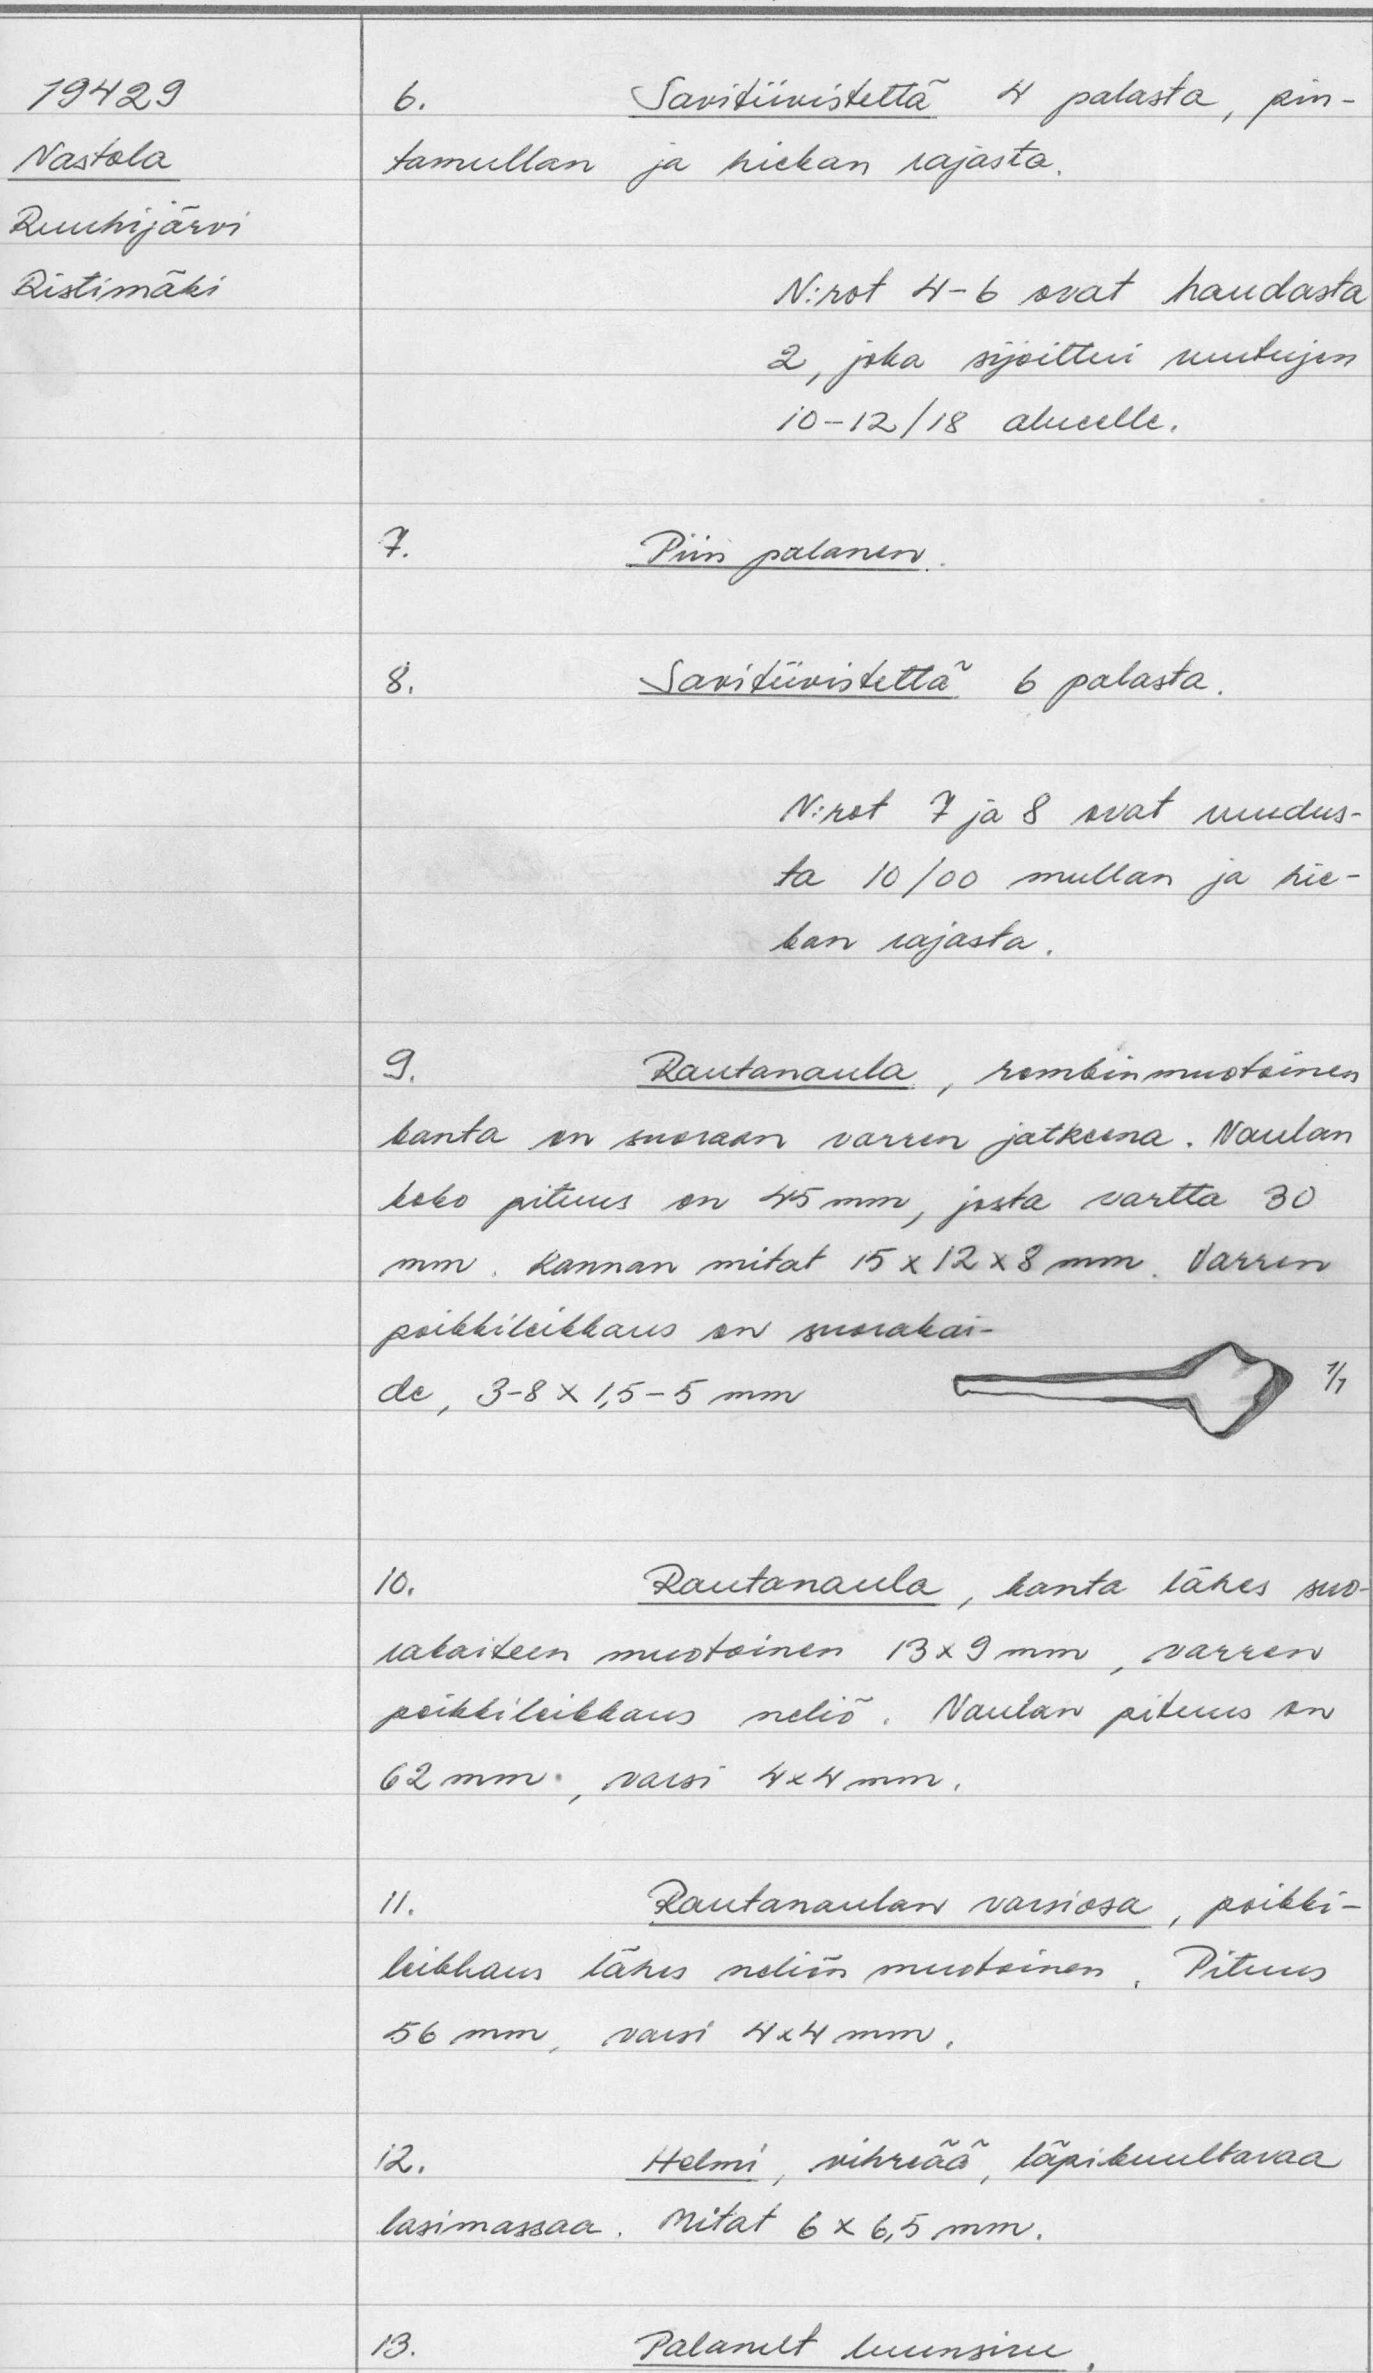 19429
Nastola
Ruuhijärvi
Ristimäki
6. Savitiivistettä 4 palasta, pin-
tamullan ja hiekan rajasta.
N:rot 4-6 ovat haudasta
2, joka sijoittui ruutujen
10-12/18 alueelle.
7. Piin palanen.
8. Savitiivistettä 6 palasta.
N:rot 7 ja 8 ovat ruudus-
ta 10/00 mullan ja hie-
kan rajasta.
9. Rautanaula, rombinmuotoinen
kanta on suoraan varren jatkeena. Naulan
koko pituus on 45 mm, josta vartta 30
mm. Kannan mitat 15 x 12 x 8 mm. Varren
poikkileikkaus on suorakai-
de, 3-8 x 1,5-5 mm
1/1
10. Rautanaula, kanta lähes suo-
rakaiteen muotoinen 13 x 9 mm, varren
poikkileikkaus neliö. Naulan pituus on
62 mm, varsi 4x4 mm.
11. Rautanaulan varsiosa, poikki-
leikkaus lähes neliön muotoinen. Pituus
56 mm, varsi 4x4 mm.
12. Helmi, vihreää, läpikuultavaa
lasimassaa. Mitat 6 x 6,5 mm.
13. Palanut luunsiru.